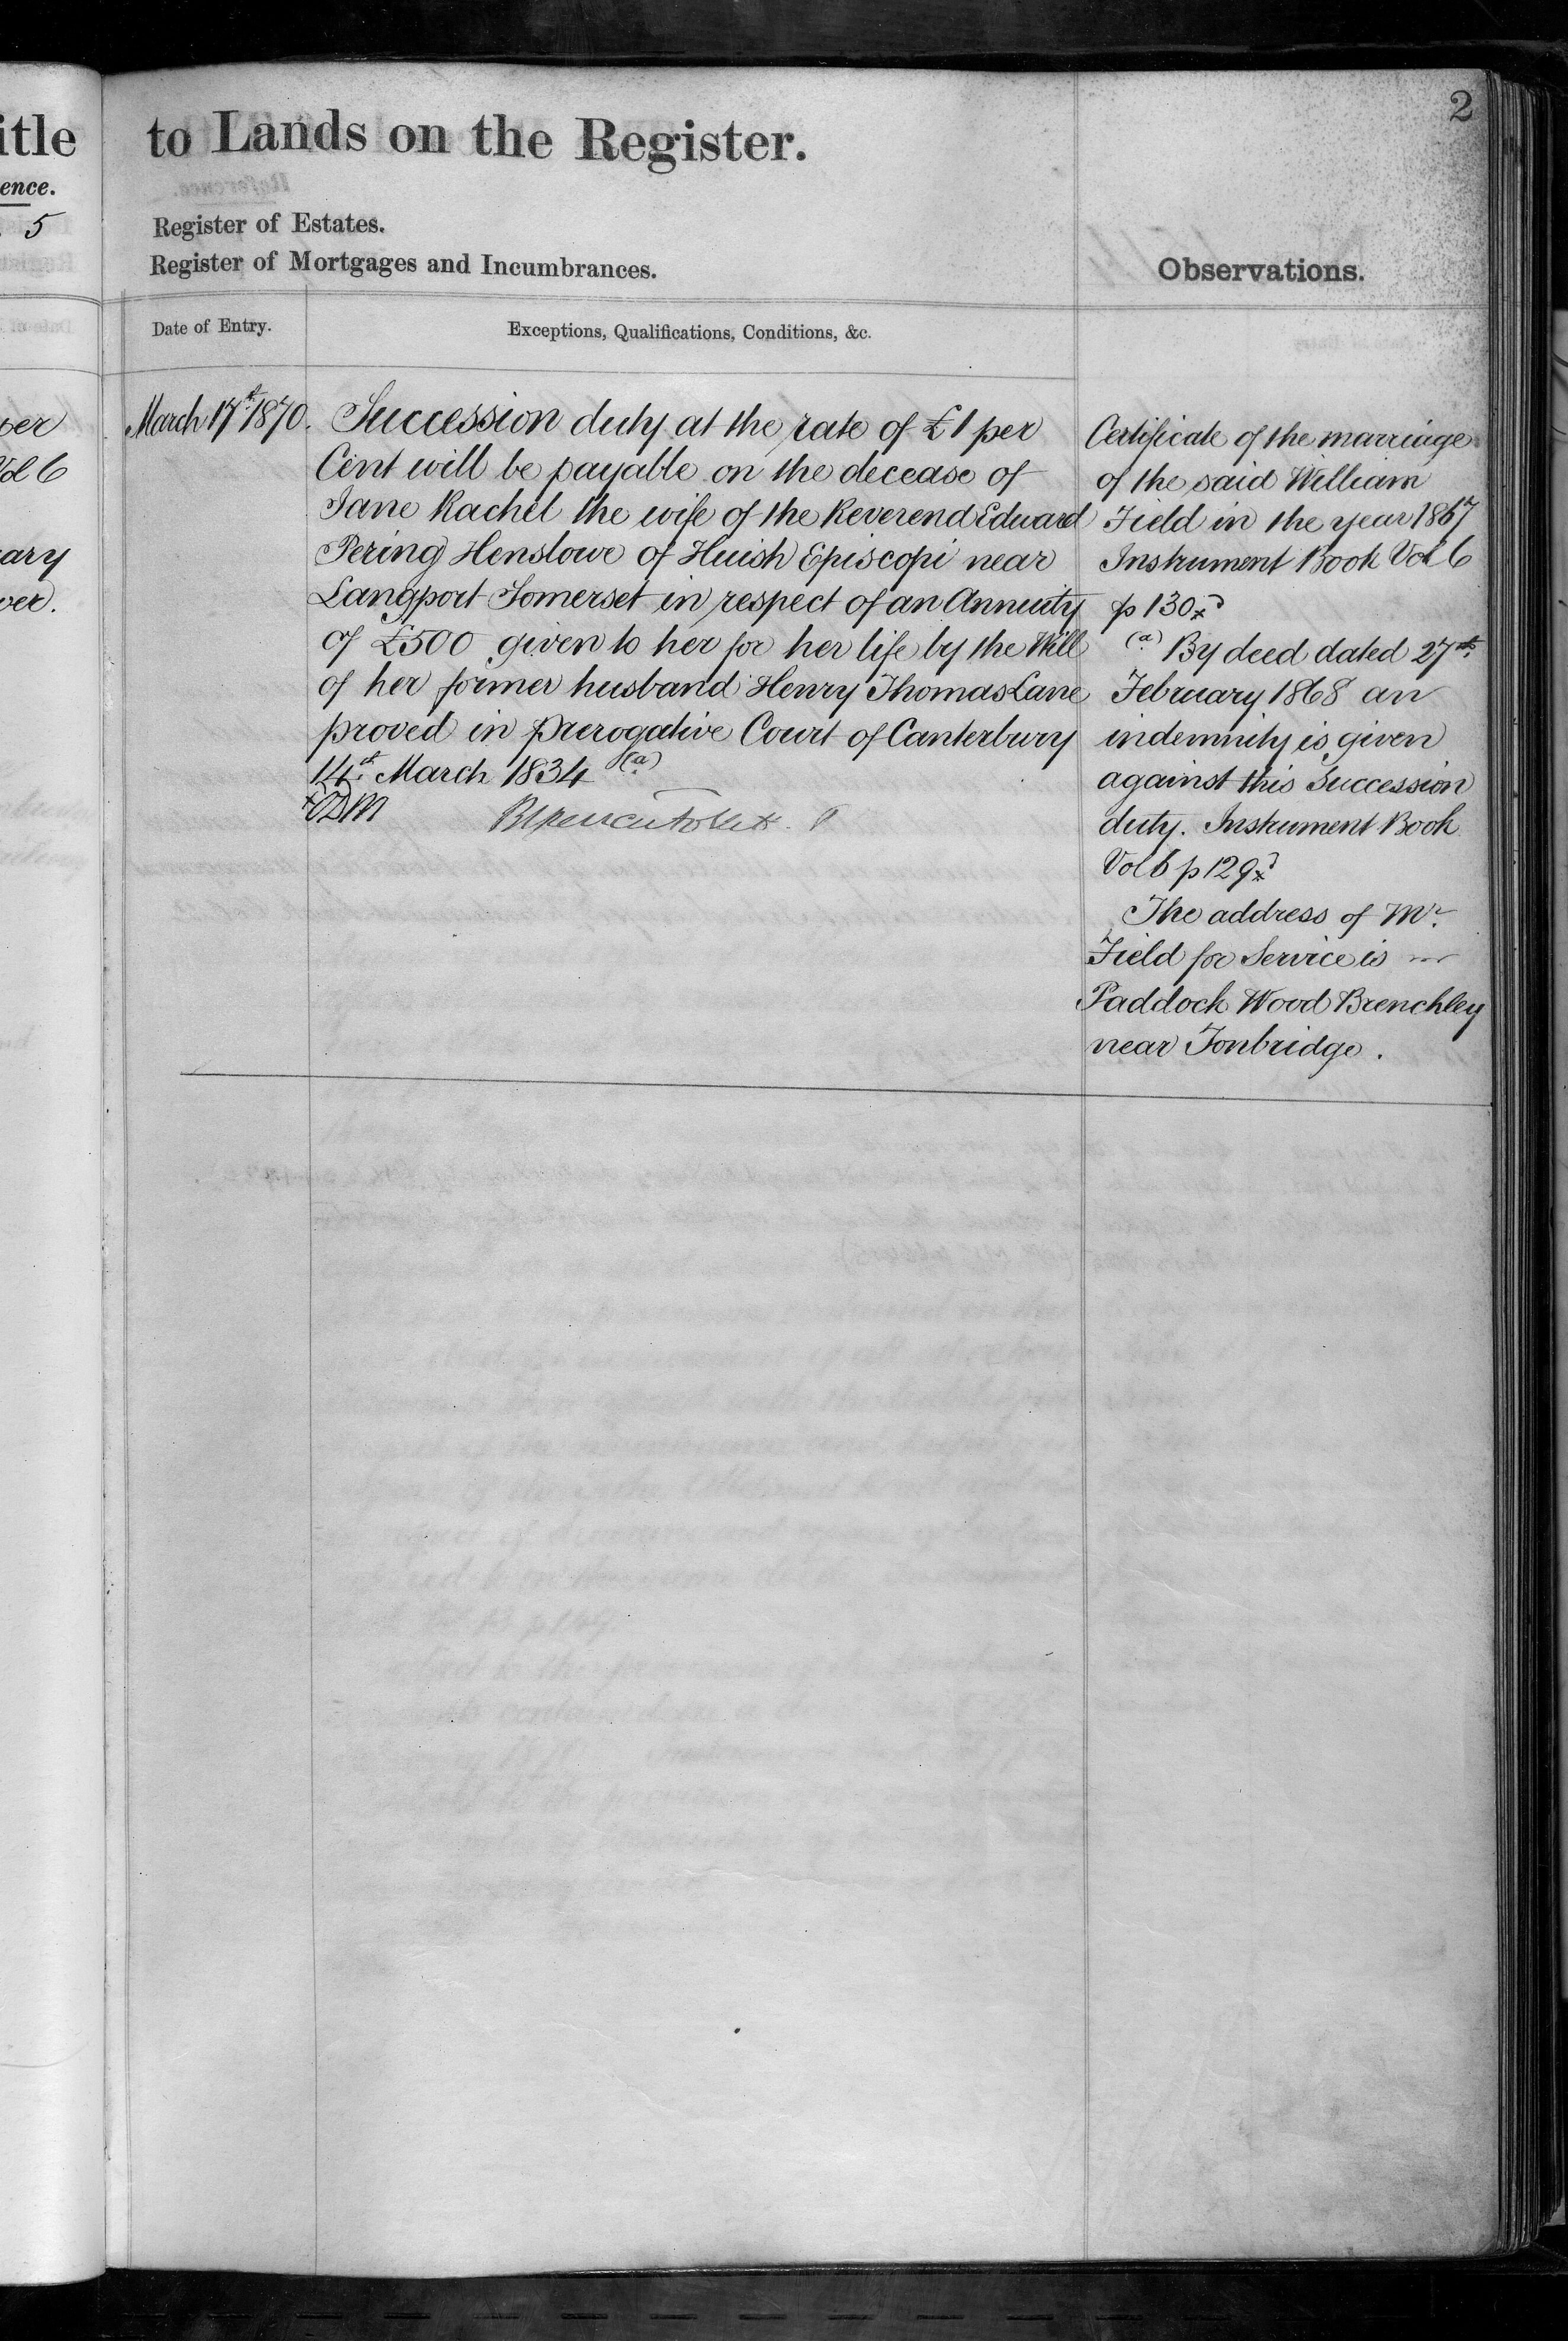 2
itle
to Lands on the Register.
ence.
5
Register of Estates.
Register of Mortgages and Incumbrances.
Observations.
Date of Entry.
Exceptions, Qualifications, Conditions, &c.
Vol 6
ary
ver.
March 17th 1870.
Succession duty at the rate of £1 per
Cent will be payable on the decease of
Jane Rachel the wife of the Reverend Edward
Pering Henslowe of Huish Episcopi near
Langport Somerset in respect of an Annuity
of £500 given to her for her life by the Will
of her former husband Henry Thomas Lane
proved in prerogative Court of Canterbury
14th March 1834 (a)
Certificate of the marriage
of the said William
Field in the year 1867
Instrument Book Vol 6
p 130
(a) By deed dated 27th
February 1868 an
indemnity is given
against this Succession
duty. Instrument Book
Vol 6 p 129
The address of Mr.
Field for Service is
Paddock Wood Brenchley
near Tonbridge.